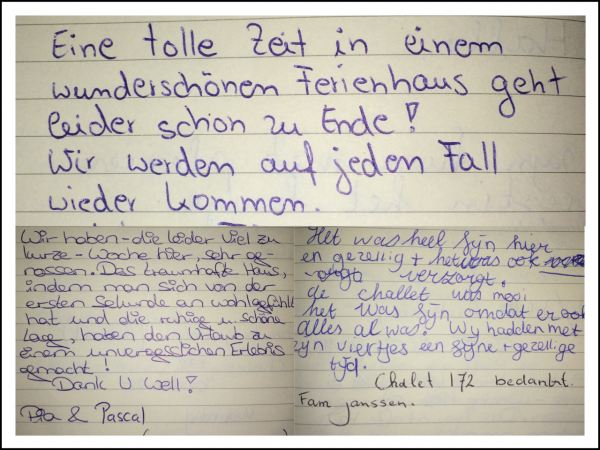 Eine tolle Zeit in einem
wunderschönen Ferienhaus geht
leider schon zu Ende!
Wir werden auf jeden Fall
wieder kommen.
Wir haben - die leider viel zu
kurze - Woche hier, sehr ge-
nossen. Das traumhafte Haus,
indem man sich von der
ersten Sekunde an wohlgefühlt
hat und die ruhige u. schöne
Lage, haben den Urlaub zu
einem unvergesslichen Erlebnis
gemacht!
Dank U well!
Pia & Pascal
Het was heel fijn hier
en gezellig + het was ook
verzorgt.
de challet was mooi
het was fijn omdat er ook
alles al was. Wy hadden met
zyn viertjes een fyne + gezellige
tyd.
Chalet 172 bedankt.
Fam janssen.